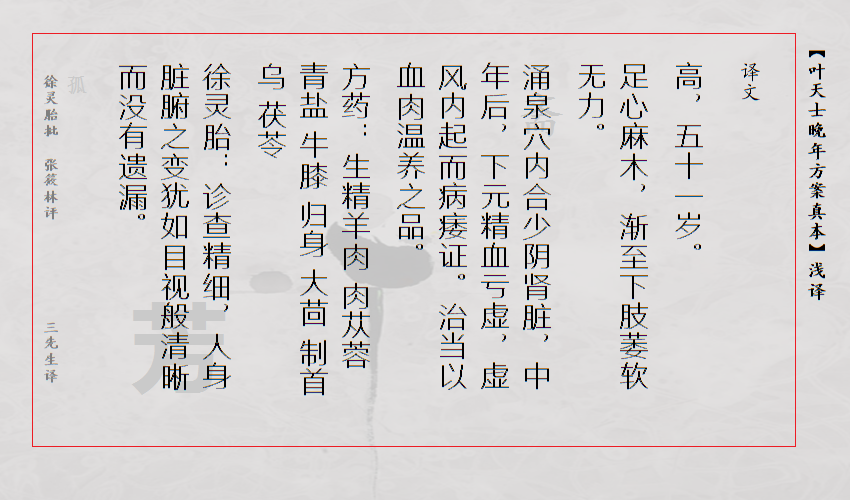 【叶天士晚年方案真本】浅译
译文
高，五十一岁。
足心麻木，渐至下肢萎软
无力。
涌泉穴内合少阴肾脏，中
年后，下元精血亏虚，虚
风内起而病痿证。治当以
血肉温养之品。
方药：生精羊肉 肉苁蓉
青盐 牛膝 归身 大茴 制首
乌 茯苓
徐灵胎：诊查精细，人身
脏腑之变犹如目视般清晰
而没有遗漏。
孤
芳
徐灵胎批 张筱林评 三先生译